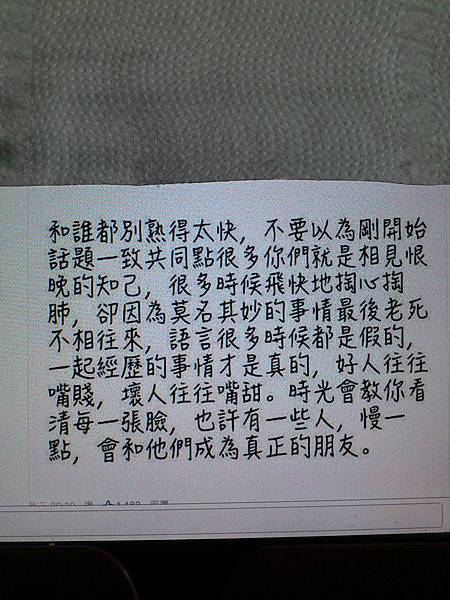 和誰都別熟得太快，不要以為剛開始
話題一致共同點很多你們就是相見恨
晚的知己，很多時候飛快地掏心掏
肺，卻因為莫名其妙的事情最後老死
不相往來，語言很多時候都是假的，
一起經歷的事情才是真的，好人往往
嘴賤，壞人往往嘴甜。時光會教你看
清每一張臉，也許有一些人，慢一
點，會和他們成為真正的朋友。